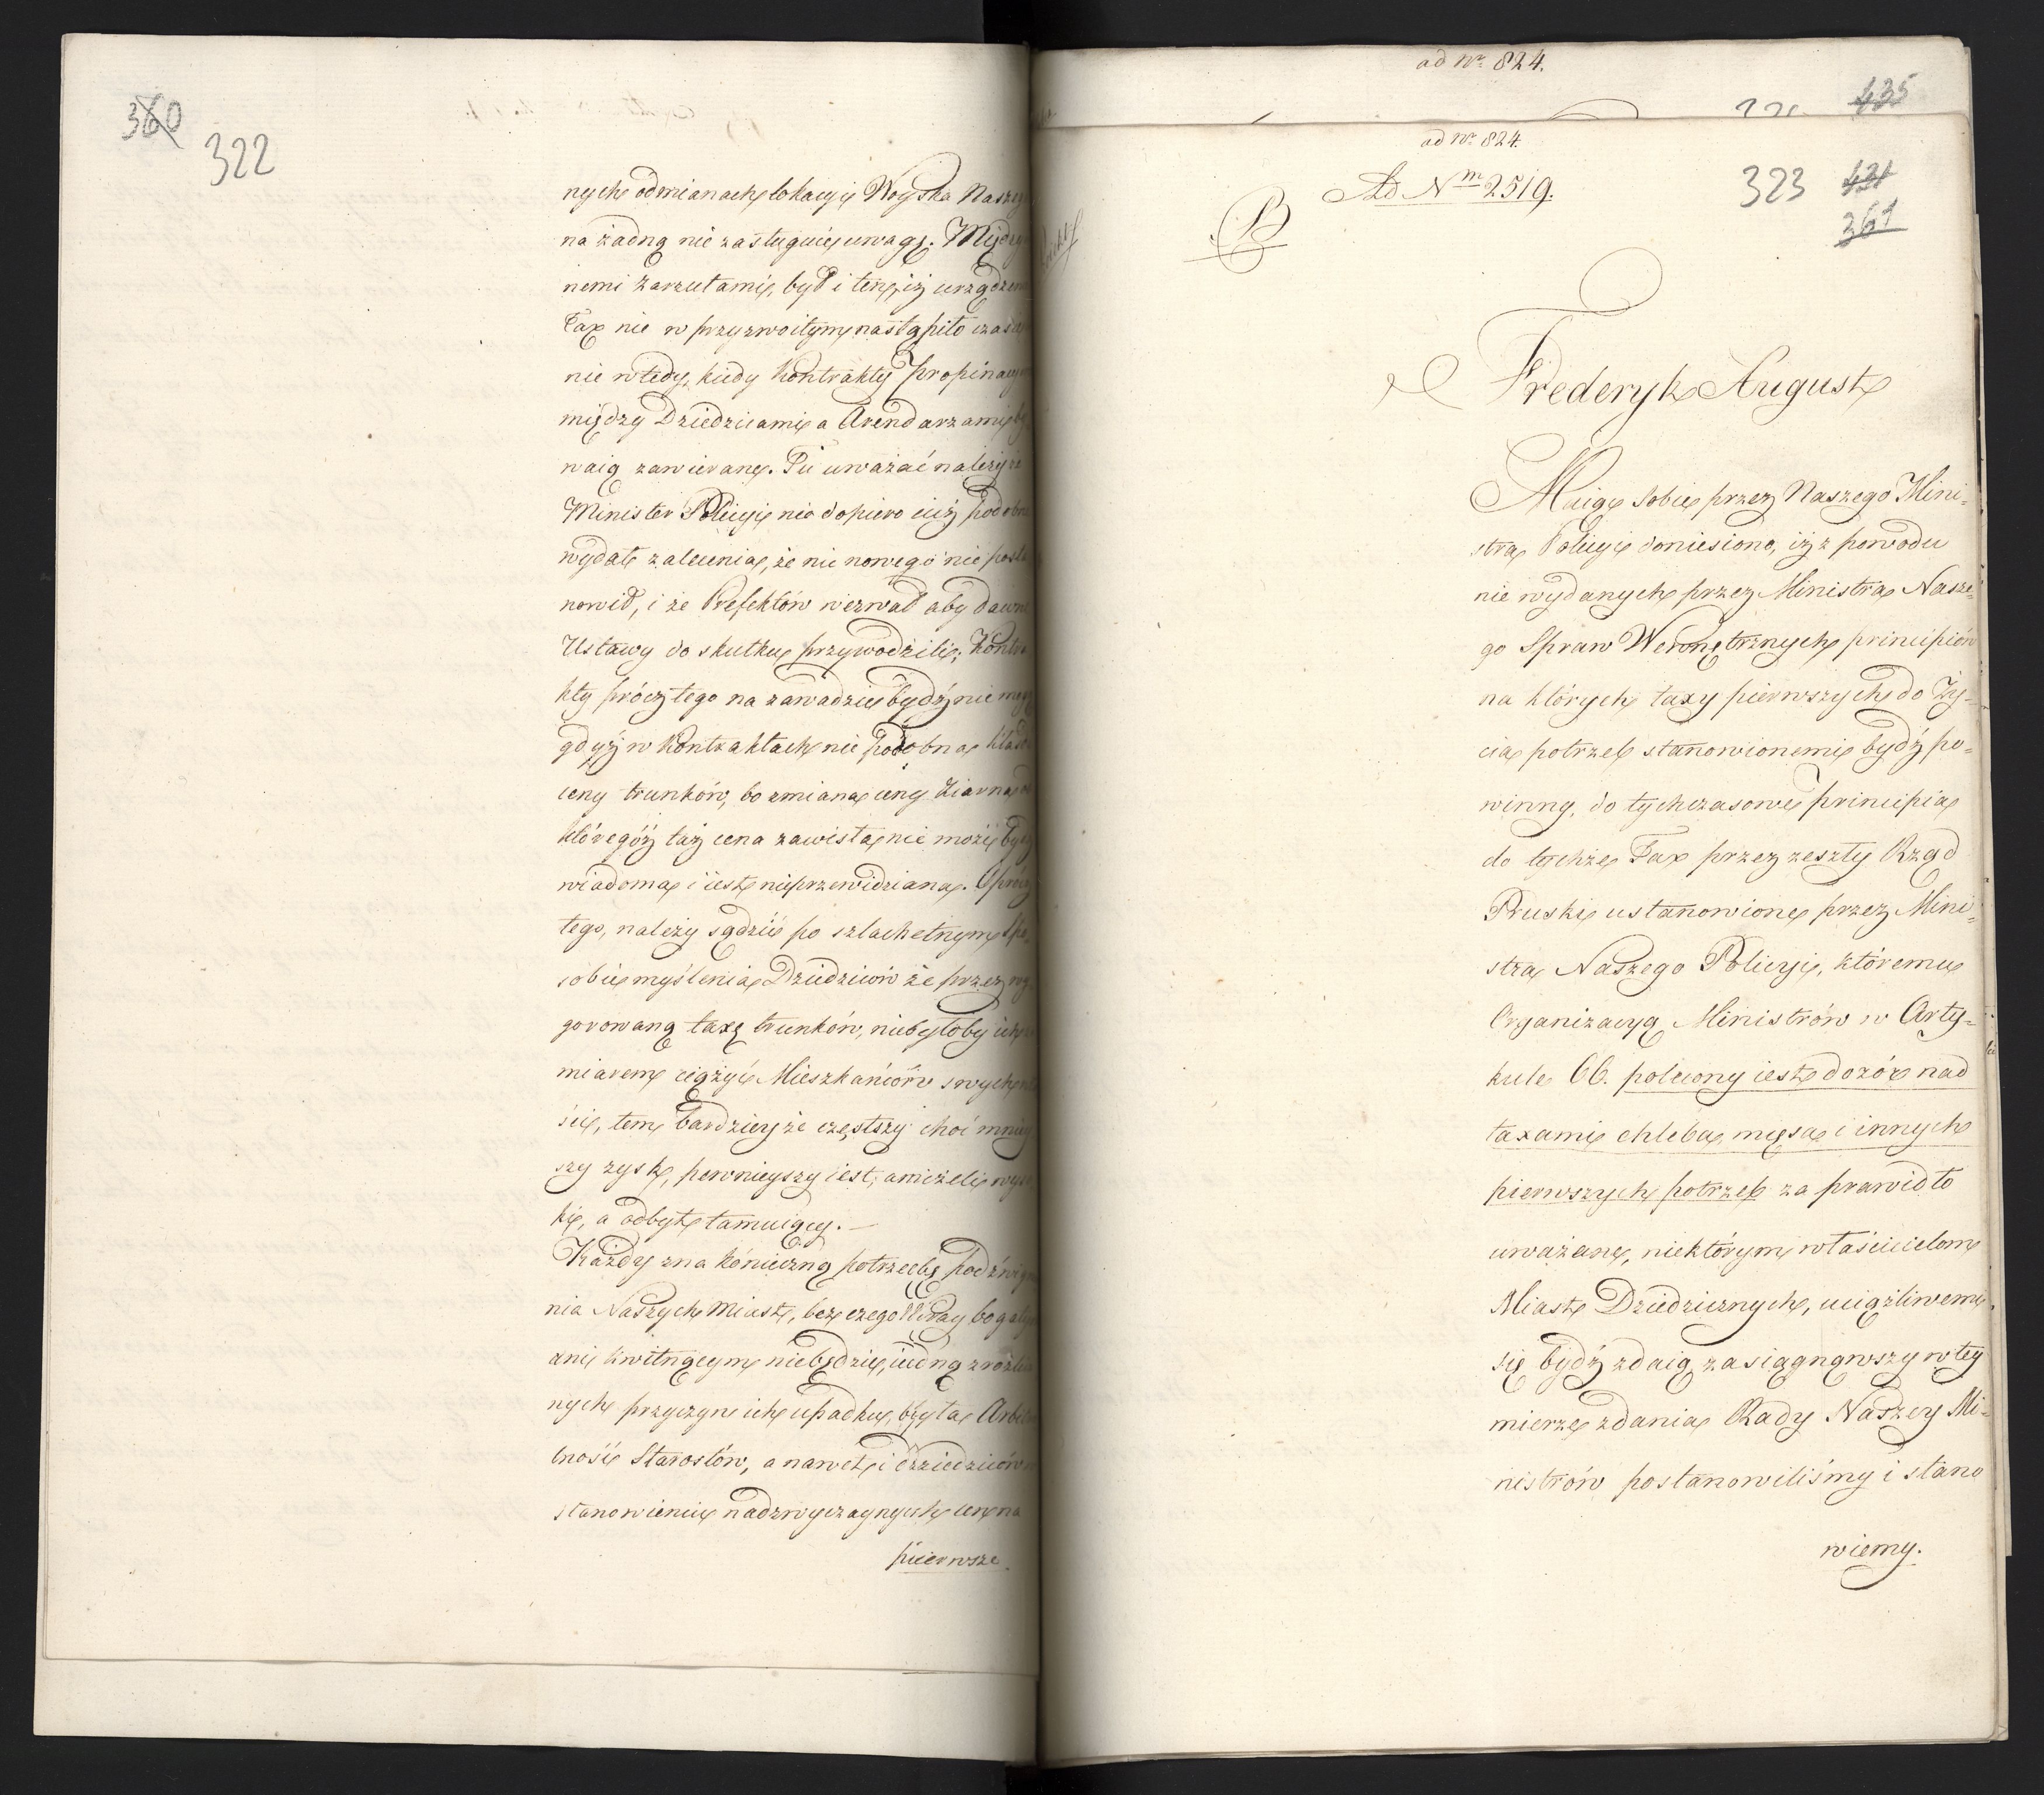 360
322
nych odmianach lokacyi Woyska Naszeg
na żadną nie zasługuię uwagę. Międz
nemi zarzutami, był i ten, iż urządze
Tax nie w przyzwoitym nastąpiło czasie
nie wtedy, kiedy Kontrakty propinacy
między Dziedzicami a Arendarzami by
waią zawierane. Tu uważać należy że
Minister Policyi nie dopiero iuż podobne
wydał zalecenia, że nic nowego nie posta
nowił, i że Prefektów wezwał aby dawne
Ustawy do skutku przywodzili; Kontra
kty prócz tego na zawadzie bydź nie mog
gdyż w Kontraktach nie podobna kłaść
ceny trunków, bo zmiana ceny Ziarna od
któregoż taż cena zawisła, nie może bydź
wiadoma i iest nieprzewidziana. Oprócz
tego, należy sądzić po szlachetnym spo-
sobie myślenia Dziedziców że przez wy
gorowaną taxę trunków, nie byłoby ich za
miarem ciążyć Mieszkańców swych
ście, tem bardziey że częstszy choć mniey
szy zysk, pewnieyszy iest, aniżeli wyso
ki, a odbyt tamuiący. —
Każdy zna konieczną potrzebę podźwign
nia Naszych Miast, bez czego Kray bogatym
ani kwitnącym nie będzie, iedną z rożlicz
nych przyczyn ich upadku, była Arbitral
ność Starostów, a nawet i dziedziców w
stanowieniu nadzwyczaynych cen na
pierwsze.
ad Nr. 824.
435
ad Nr. 824.
Ad Nm 2519.
323 431
361
B
Frederyk August
Maiąc sobie przez Naszego Mini-
stra Policyi doniesiono, iż z powodu
nie wydanych przez Ministra Nasze-
go Spraw Wewnętrznych principiów
na których taxy pierwszych do Ży-
cia potrzeb stanowionemi bydź po-
winny, do tychczasowe principia
do tychże Tax przez zeszły Rząd
Pruski ustanowione przez Mini-
stra Naszego Policyi, któremu
Organizacyą Ministrów w Arty-
kule 66. polecony iest dozór nad
taxami chleba, mięsa i innych
pierwszych potrzeb za prawidło
uważane, niektórym właścicielom
Miast Dziedzicznych, uciążliwemi
się bydź zdaią, zasiągnąwszy w tey
mierze zdania Rady Naszey Mi-
nistrów postanowiliśmy i stano
wiemy.